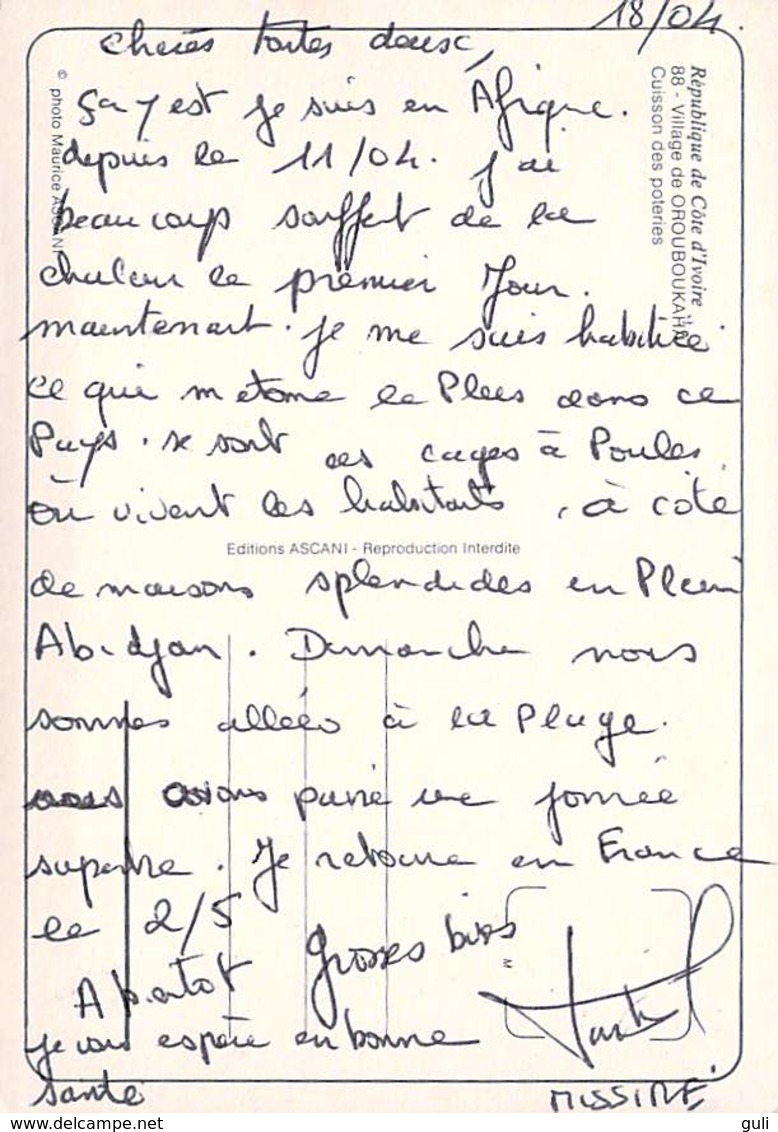 18/04.
Chères toutes deux,
ça y est je suis en Áfrique.
depuis le 11/04. j'ai
beaucoup souffert de la
chaleur le premier Jour.
maintenant. je me suis habituée
ce qui m'etonne le Plus dans ce
Pays. se sont ces cages à Poules
où vivent les habitants, à coté
de maisons splendides en Plein
Abidjan. Dimanche nous
sommes allées à la Plage.
nous avions passé une jornée
superbe. Je retourne en France
le 2/5
Grosses bises
A bientot
je vous espère en bonne
santé
MISSIRÉ
République de Côte d'Ivoire
88 - Village de OROUBOUKAHA
Cuisson des poteries
© photo Maurice ASCANI
Editions ASCANI - Reproduction Interdite
guli